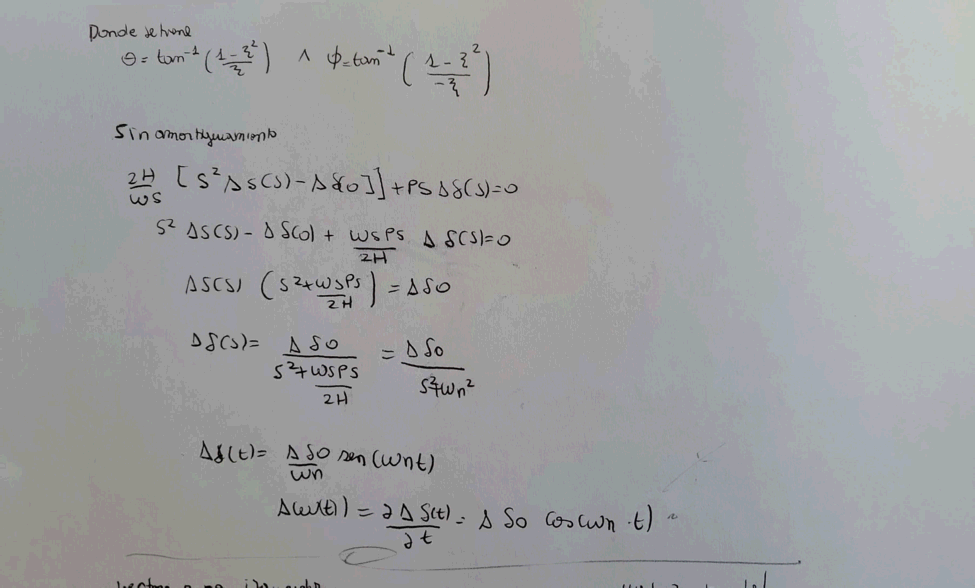 Donde se tiene
θ = tan⁻¹ ( (1-ξ²)/ξ ) ∧ ϕ = tan⁻¹ ( (1-ξ²)/-ξ )
Sin amortiguamiento
2H/ws [s² Δδ(s) - Δδ[0]] + Ps Δδ(s) = 0
s² Δδ(s) - Δδ(0) + wsPs/2H Δδ(s) = 0
Δδ(s) ( s² + wsPs/2H ) = Δδ0
Δδ(s) = Δδ0 / (s² + wsPs/2H) = Δδ0 / (s² + wn²)
Δδ(t) = Δδ0/wn sen(wnt)
Δω(t)) = ∂Δδ(t)/∂t = Δδ0 cos(wn·t)